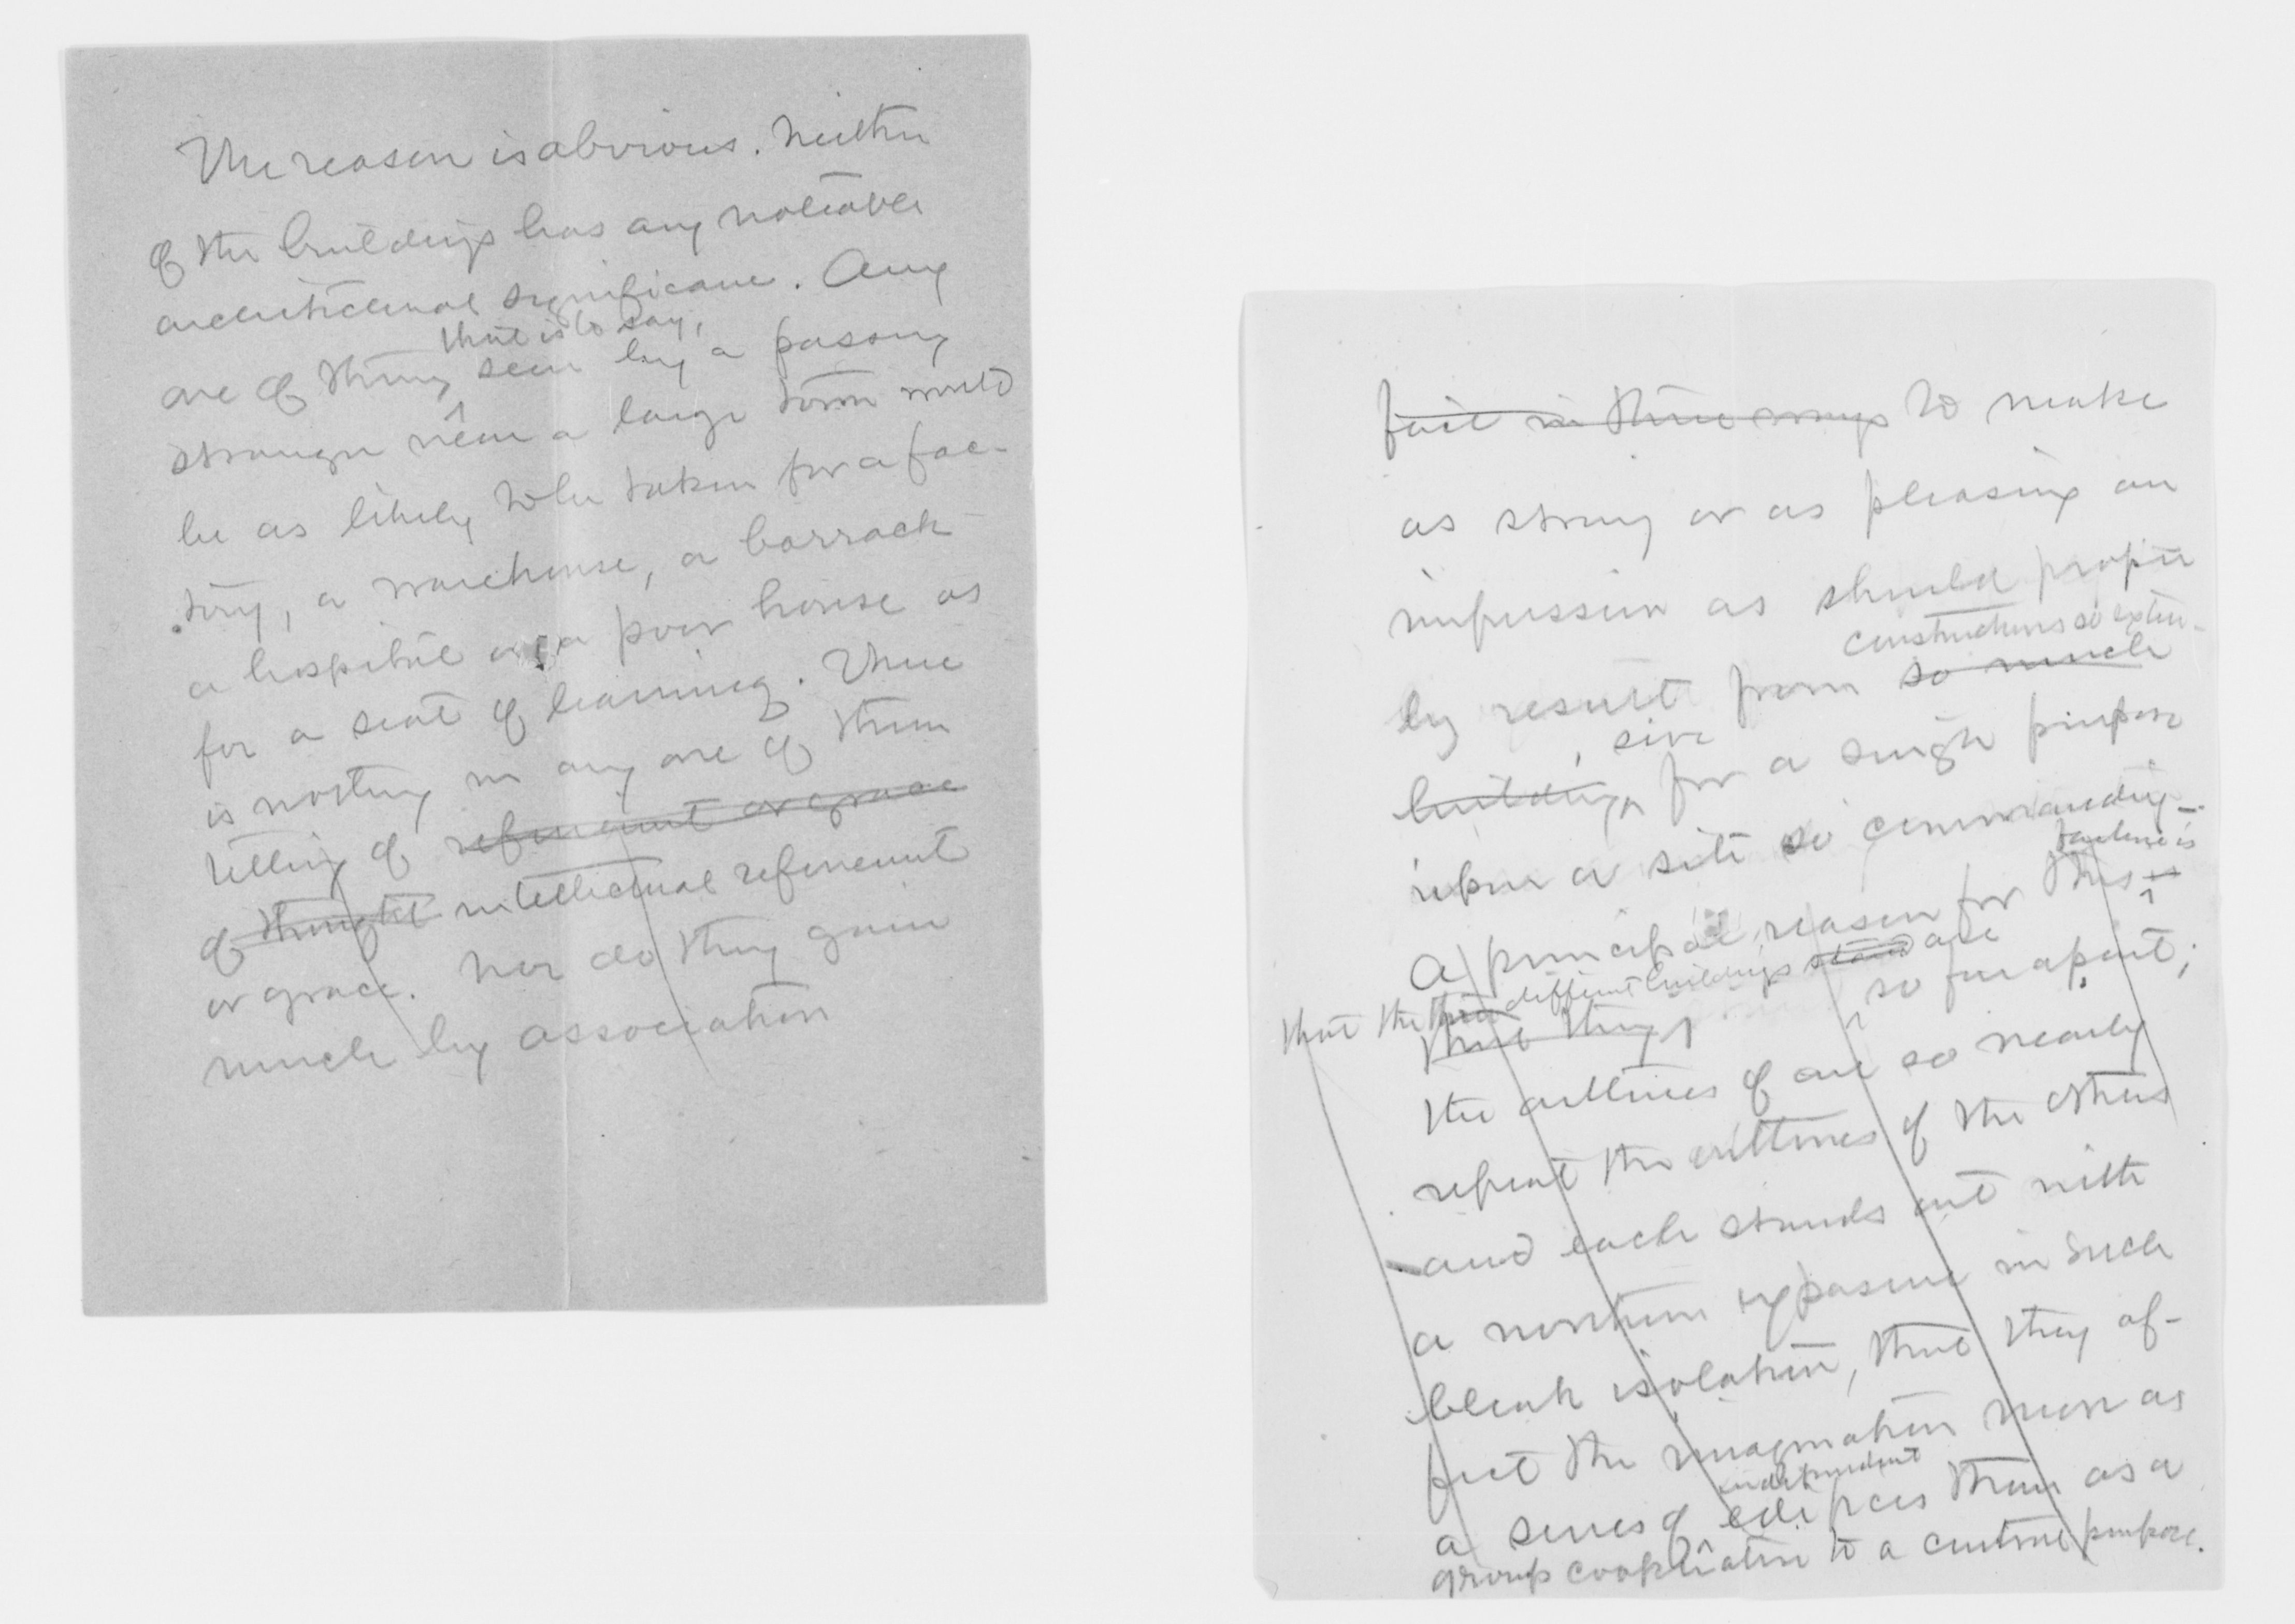 The reason is obvious. Neither
of the buildings has any noticeable
architectural significance. Any
one of them, that is to say,
seen by a passing
stranger near a large town would
be as likely to be taken for a fac-
tory, a warehouse, a barrack
a hospital or a poor house as
for a seat of learning. There
is nothing in any one of them
telling of refinement or grace
of thought intellectual refinement
or grace. Nor do they gain
much by association
fail in three ways to make
as strong or as pleasing an
impression as should proper
constructions so exten-
ly result from so much
sive
building, for a single purpose
upon a site so commanding.
failure is
A principal reason for this is
that the three different buildings stand are
that they so far apart;
the outlines of one so nearly
repeat the outlines of the others
and each stands out with
a northern exposure in such
bleak isolation, that they af-
fect the imagination more as
independent
a series of edifices than as a
group cooperative to a central purpose.